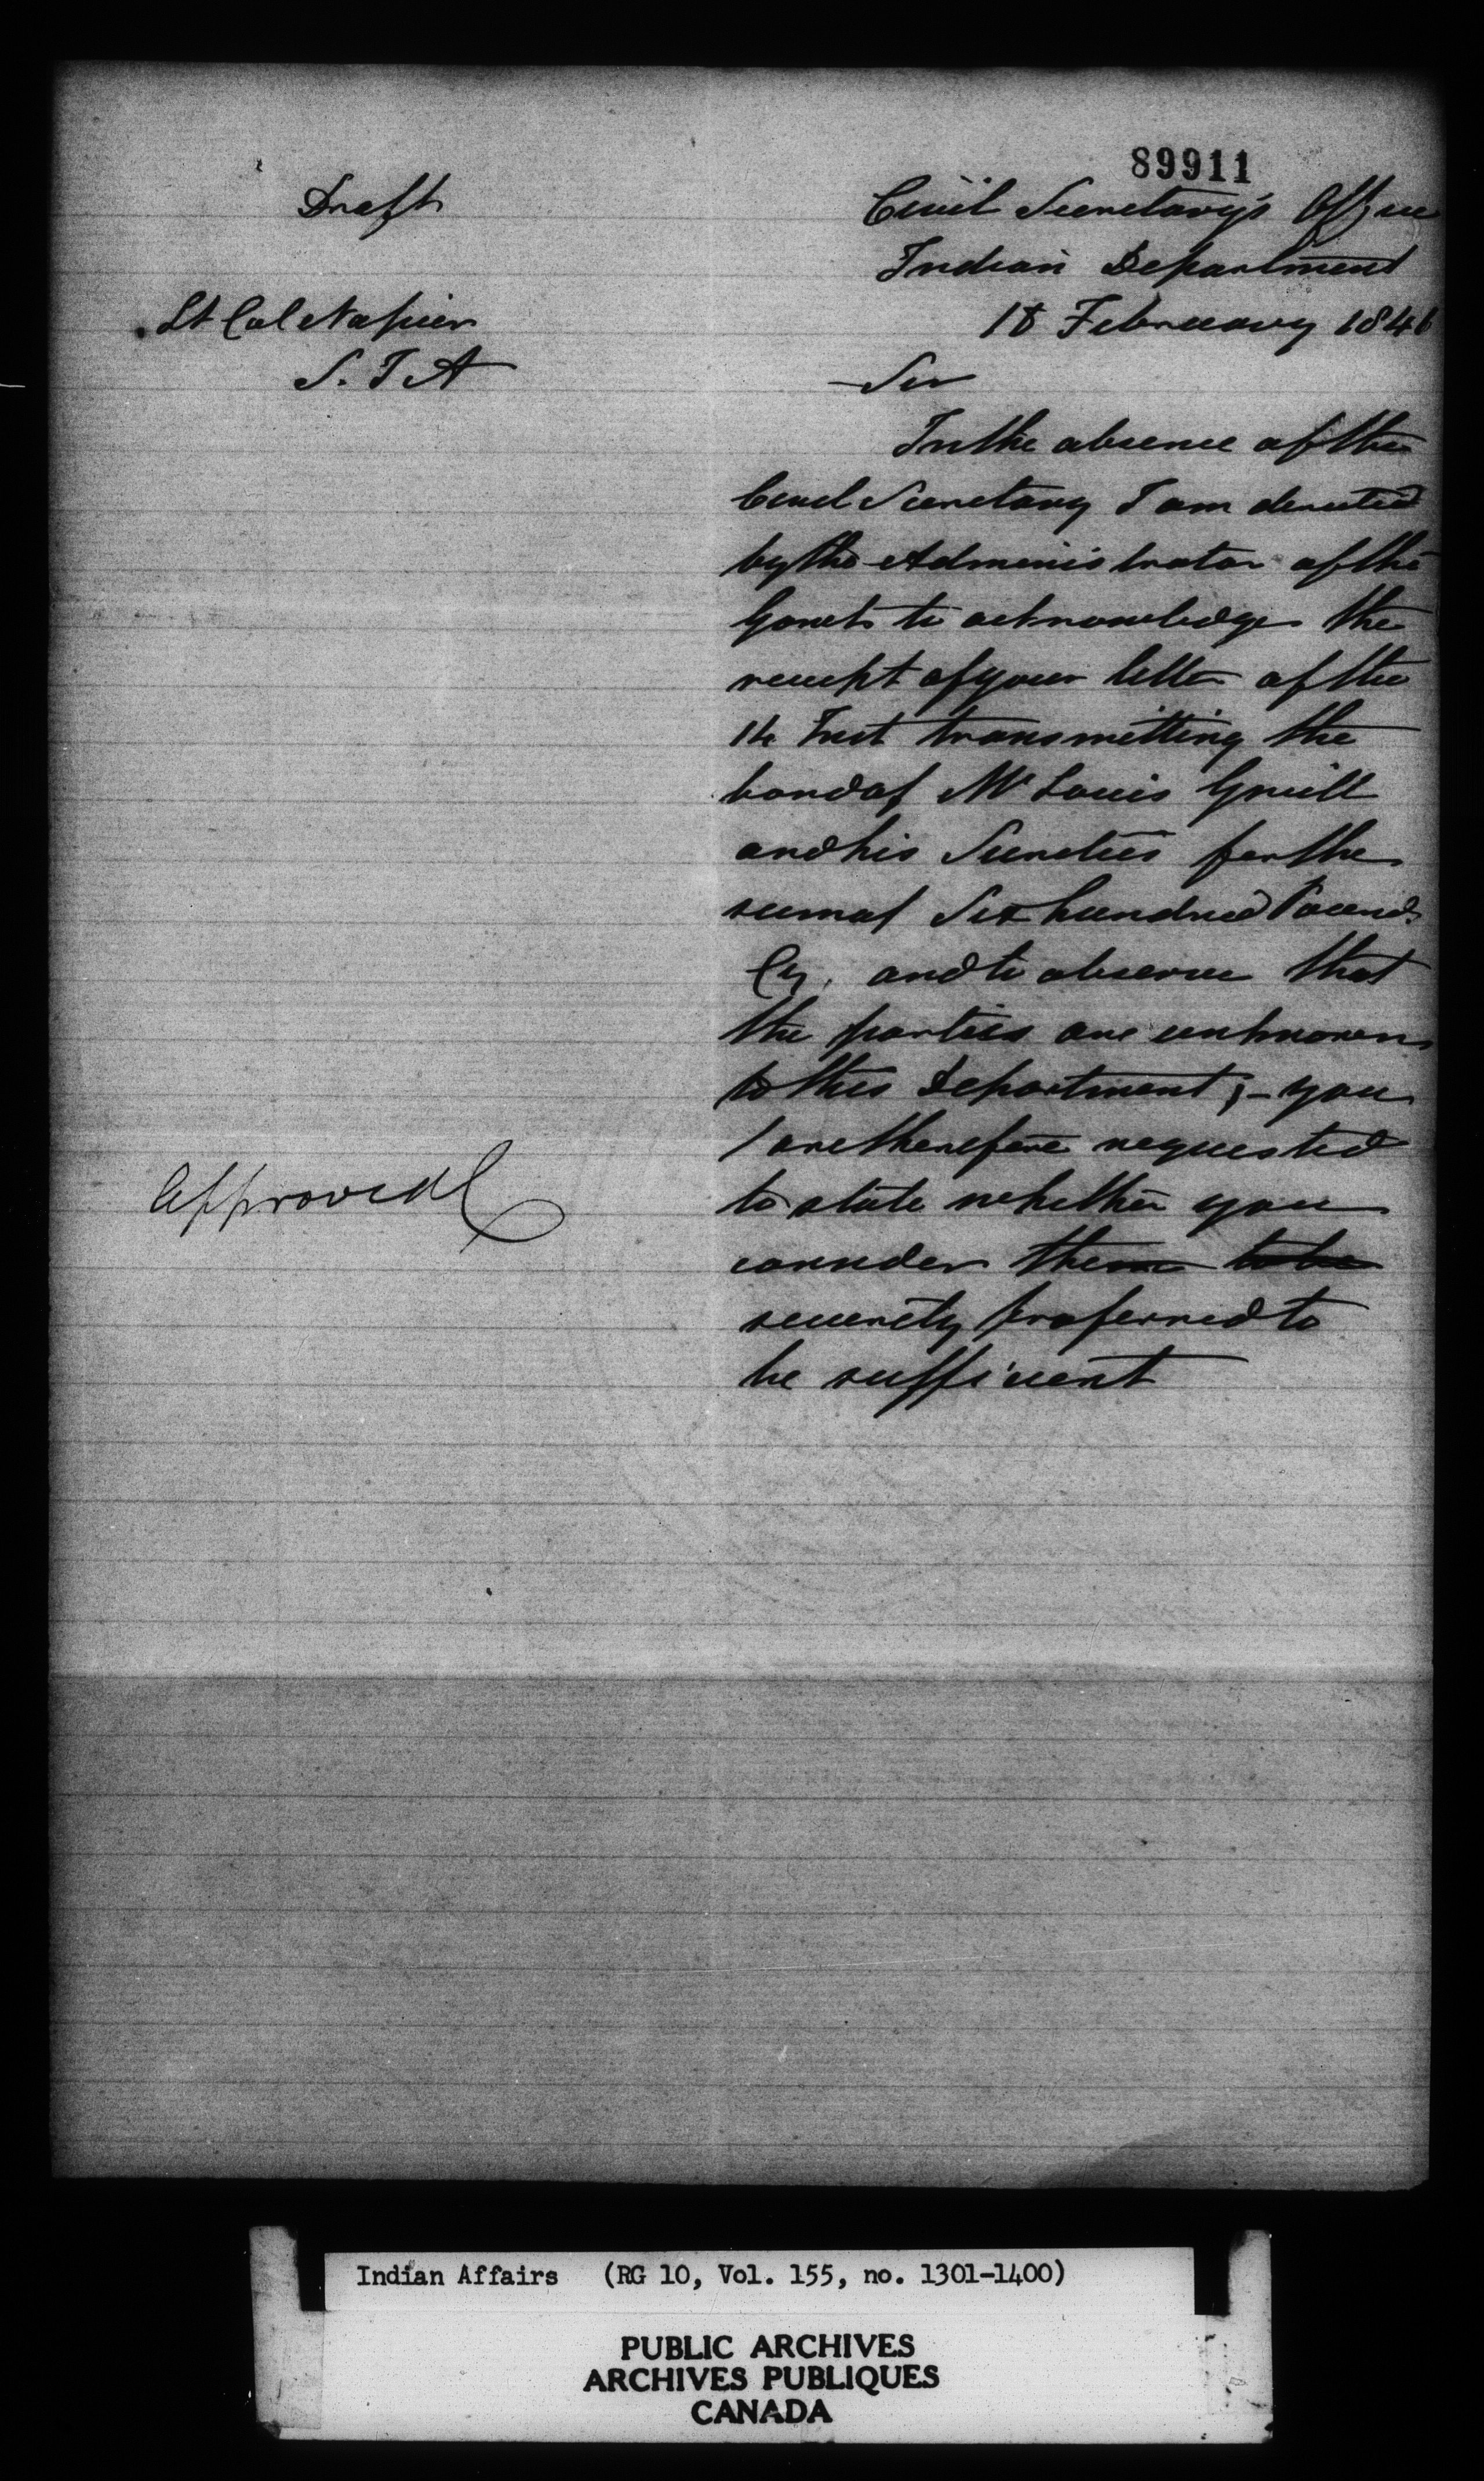 89911
Draft
Civil Secretary's Office
Indian Department
18 February 1846
Lt Col Napier
S. I A
Sir
In the absence of the
Civil Secretary I am directed
by the Administrator of the
Govert to acknowledge the
receipt of your letter of the
14 Inst transmitting the
bond of Mr Louis Gnill
and his Sureties for the
sum of Six hundred Pounds
Cy. and to observe that
the parties are unknown
to this Department ;- you
are therefore requested
to state whether you
consider them to be
security proferred to
be sufficient
Approved
Indian Affairs (RG 10, Vol. 155, no. 1301-1400)
PUBLIC ARCHIVES
ARCHIVES PUBLIQUES
CANADA